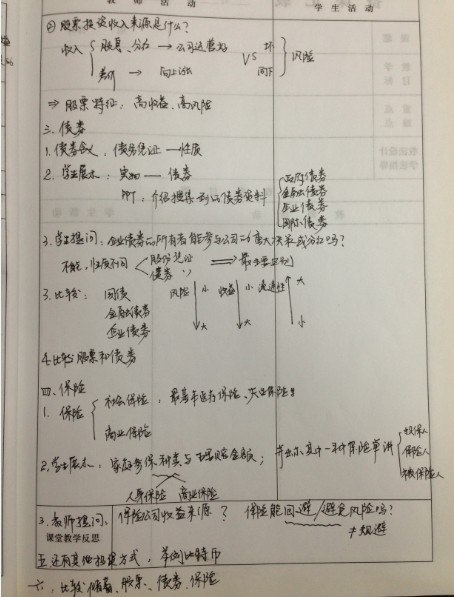 教师活动 学生活动
② 股票投资收入来源是什么?
收入 股息、分红 → 公司运营好 VS 坏 风险
差价 → 向上 向下
⇒ 股票特征: 高收益、高风险
三. 债券
1. 债券含义, 债务凭证 — 性质
2. 学生展示: 实物 — 债券
PPT: 介绍搜集到的债券资料 政府债券
金融债券
企业债券
国际债券
3. 学生提问: 企业债券的所有者能参与公司的重大决策或分红吗?
不能, 性质不同 股份凭证 ⇒ 最主要区别
债券
3. 比较: 国债 风险 小 收益 小 流通性 大
金融债券
企业债券 大 大 小
4. 比较股票和债券
四. 保险
1. 保险 社会保险: 医疗保险、失业保险
商业保险
2. 学生展示: 家庭参保种类与理赔金额; 并出示其中一种保险单讲 投保人
保险人
被保险人
人身保险 商业保险
3. 教师提问: 保险公司收益来源? 保险能回避/避免风险吗?
课堂教学反思 ≠ 规避
五. 还有其他投资方式, 举例比特币
六. 比较储蓄、股票、债券、保险